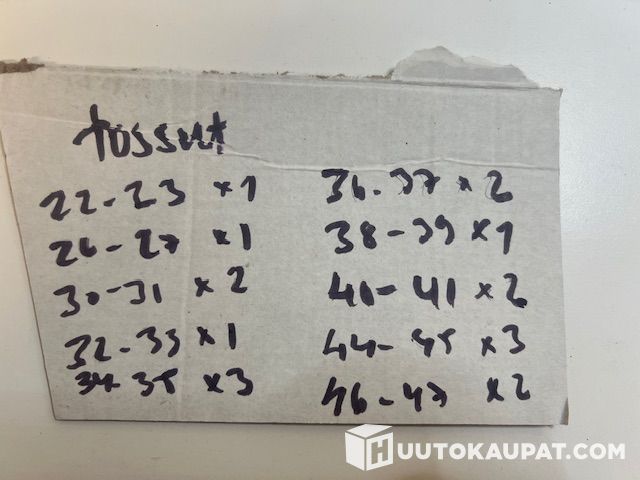 tossut
22-23 x1
26-27 x1
30-31 x2
32-33 x1
34-35 x3
36-37 x2
38-39 x1
40-41 x2
44-45 x3
46-47 x2
HUUTOKAUPAT.COM